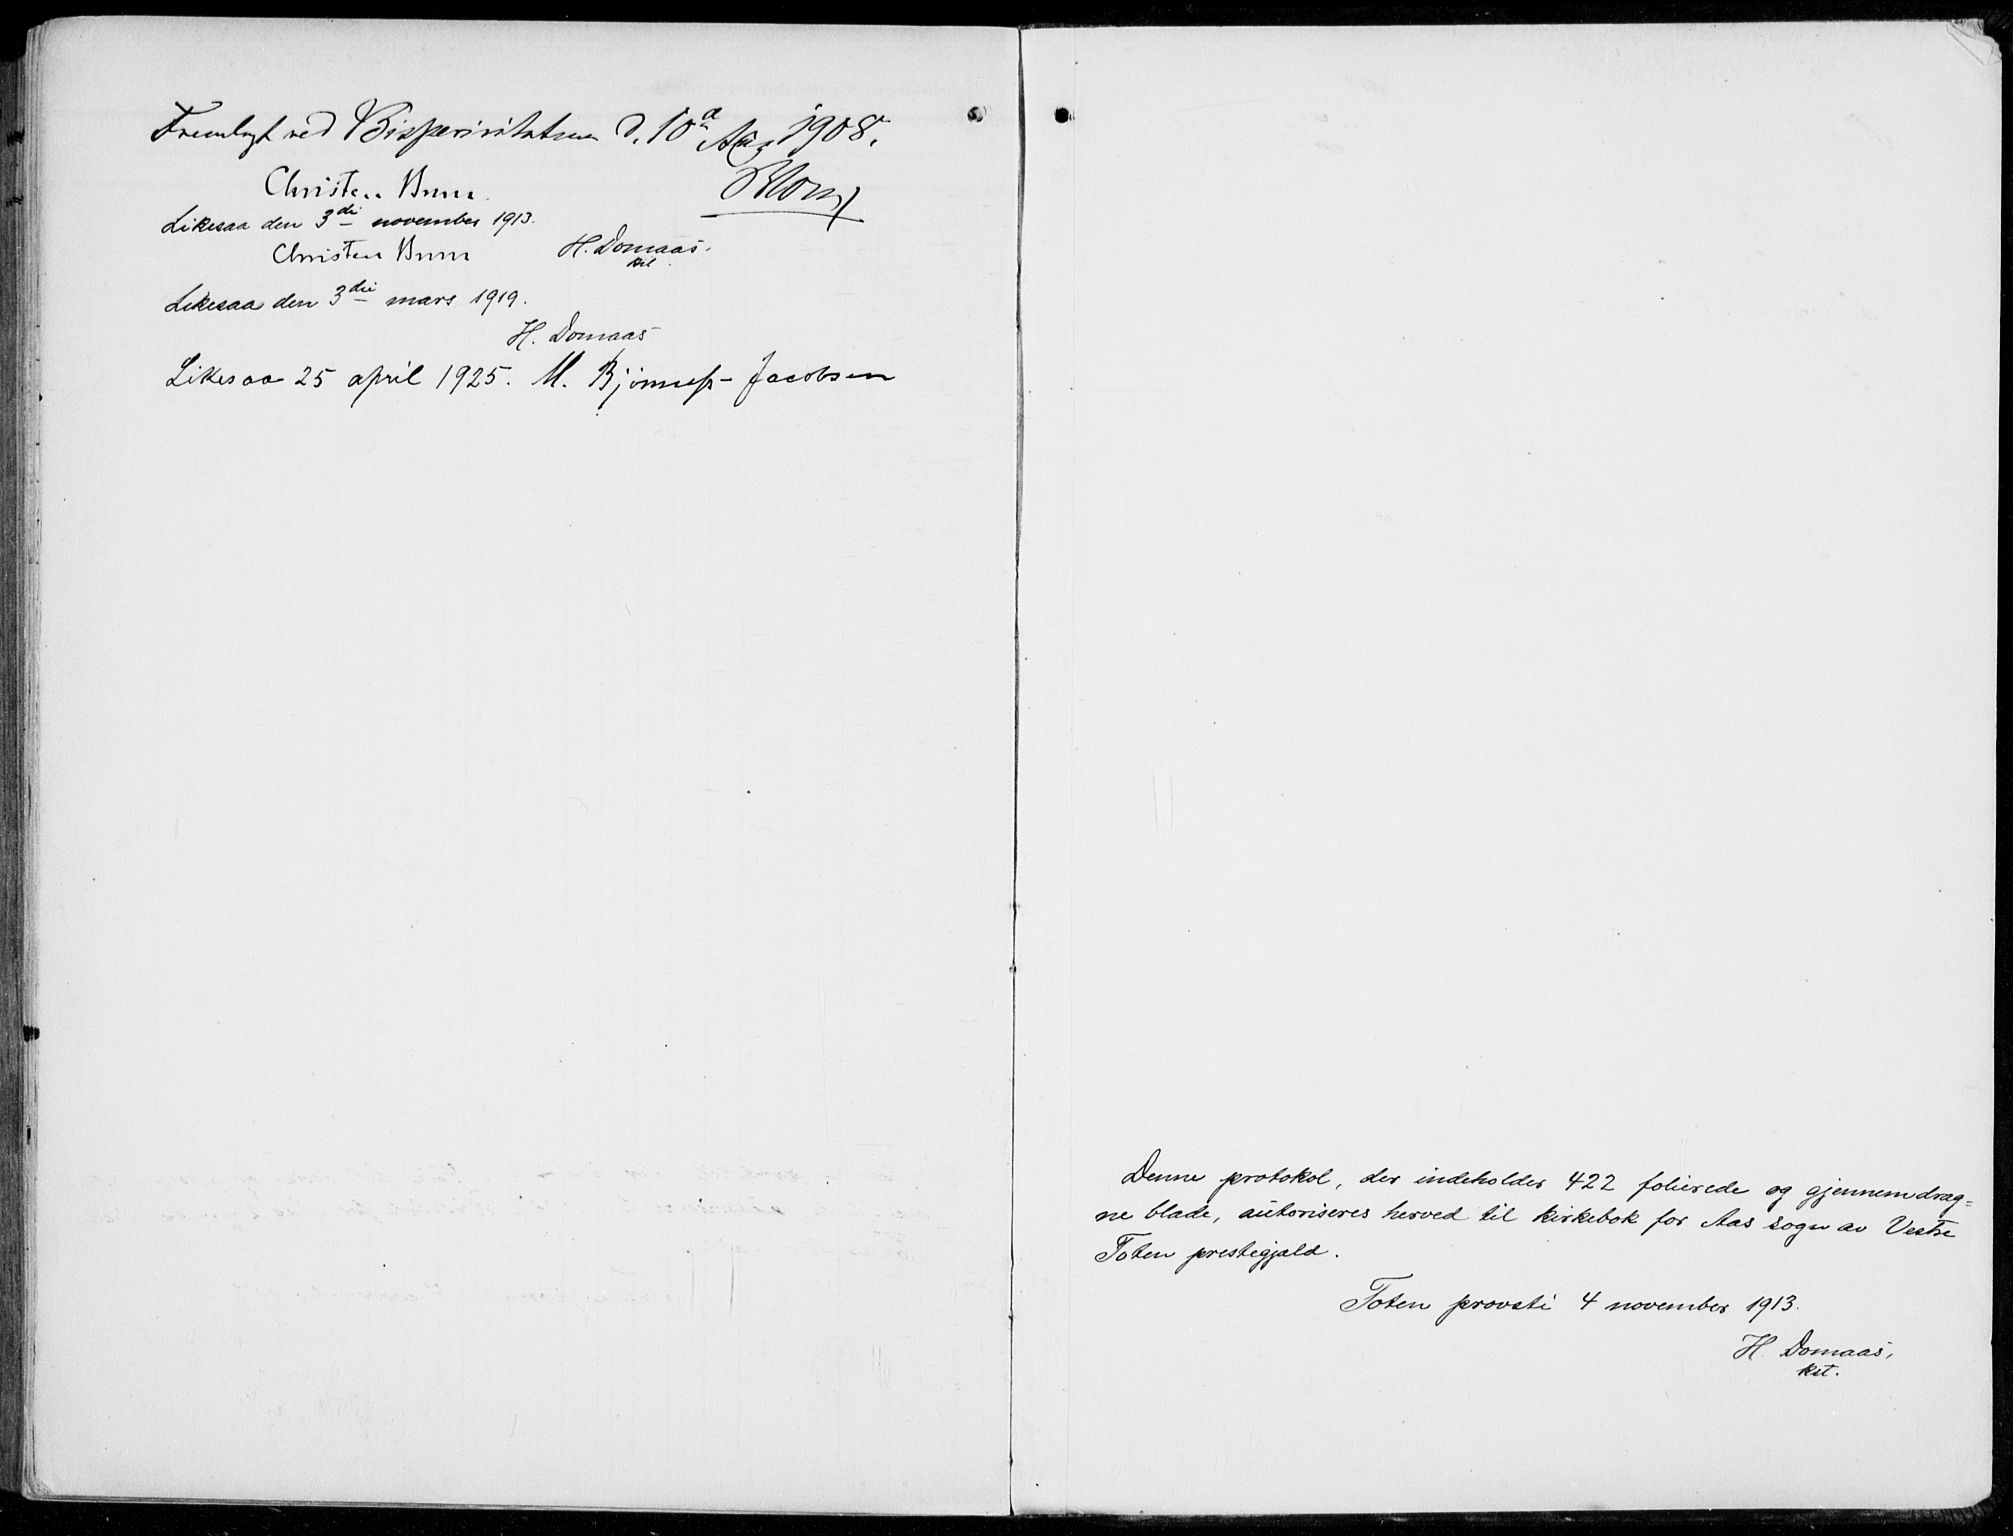 Fremlagt ved Bispevisitatsen d. 10d Aug 1908.
Christen Brun
Blom
Likesaa den 3die november 1913.
Christen Brun H. Domaas.
kst
Likesaa den 3die mars 1919.
H. Domaas
Likesaa 25 april 1925. M. Bjønness-Jacobsen
Denne protokol, der indeholder 422 folierede og gjennemdrag=
ne blade, autoriseres herved til kirkebok for Aas sogn av Vestre
Toten prestegjæld.
Toten provsti 4 november 1913.
H. Domaas,
kst.